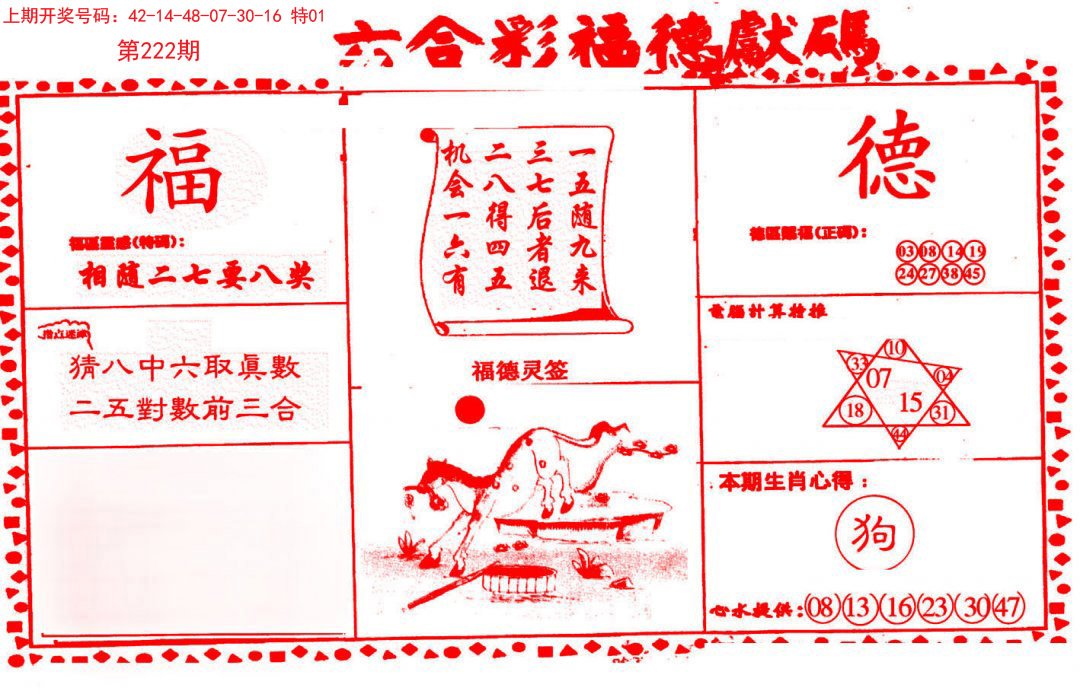 上期开奖号码：42-14-48-07-30-16 特01
第222期
六合彩福德獻碼
福
福區靈感(特碼)：
相随二七要八奖
指点迷津
猜八中六取眞數
二五對數前三合
一五随九来
三七后者退
二八得四五
机会一六有
福德灵签
德
德區賜福(正碼)：
03 08 14 19
24 27 38 45
電腦計算特推
10
33
07
04
18
15
31
44
本期生肖心得：
狗
心水提供：08 13 16 23 30 47